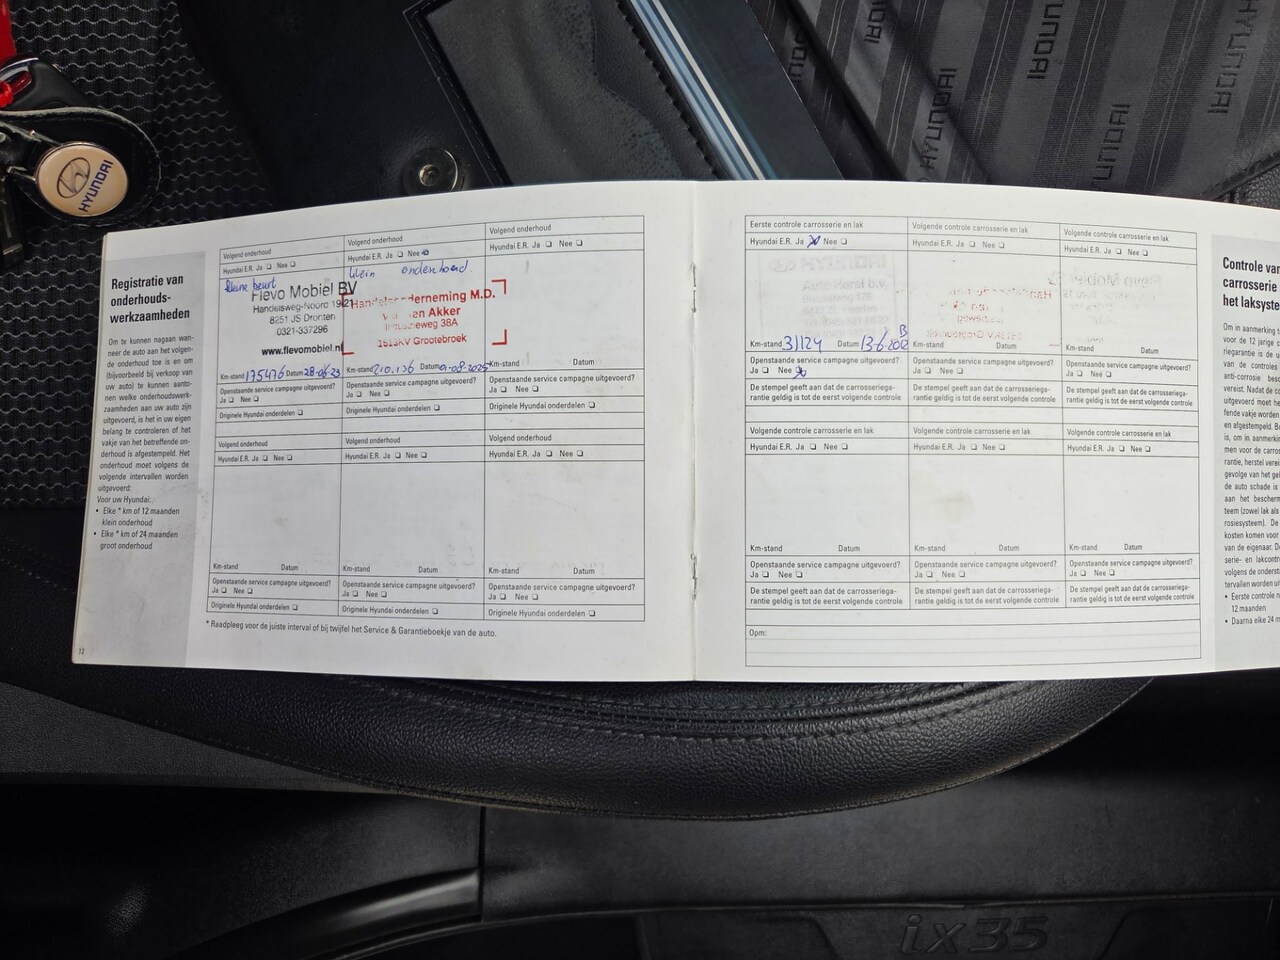 HYUNDAI
HYUNDAI
HYUNDAI
HYUNDAI
HYUNDAI
HYUNDAI
Registratie van
onderhouds-
werkzaamheden
Om te kunnen nagaan wan-
neer de auto aan het volgen-
de onderhoud toe is en om
(bijvoorbeeld bij verkoop van
uw auto) te kunnen aanto-
nen welke onderhoudswerk-
zaamheden aan uw auto zijn
uitgevoerd, is het in uw eigen
belang te controleren of het
vakje van het betreffende on-
derhoud is afgestempeld. Het
onderhoud moet volgens de
volgende intervallen worden
uitgevoerd:
Voor uw Hyundai:
• Elke * km of 12 maanden
klein onderhoud
• Elke * km of 24 maanden
groot onderhoud
12
Volgend onderhoud
Hyundai E.R. Ja ❏ Nee ❏
kleine beurt
Flevo Mobiel BV
Handelsweg-Noord 19-21
8251 JS Dronten
0321-337296
www.flevomobiel.nl
Km-stand 175476 Datum 28-06-23
Openstaande service campagne uitgevoerd?
Ja ❏ Nee ❏
Originele Hyundai onderdelen ❏
Volgend onderhoud
Hyundai E.R. Ja ❏ Nee ❏
klein onderhoud
Handelsonderneming M.D.
van den Akker
38A
1613KV Grootebroek
Km-stand 210.136 Datum 01-08-2025
Openstaande service campagne uitgevoerd?
Ja ❏ Nee ❏
Originele Hyundai onderdelen ❏
Volgend onderhoud
Hyundai E.R. Ja ❏ Nee ❏
Km-stand Datum
Openstaande service campagne uitgevoerd?
Ja ❏ Nee ❏
Originele Hyundai onderdelen ❏
Volgend onderhoud
Hyundai E.R. Ja ❏ Nee ❏
Km-stand Datum
Openstaande service campagne uitgevoerd?
Ja ❏ Nee ❏
Originele Hyundai onderdelen ❏
Volgend onderhoud
Hyundai E.R. Ja ❏ Nee ❏
Km-stand Datum
Openstaande service campagne uitgevoerd?
Ja ❏ Nee ❏
Originele Hyundai onderdelen ❏
Volgend onderhoud
Hyundai E.R. Ja ❏ Nee ❏
Km-stand Datum
Openstaande service campagne uitgevoerd?
Ja ❏ Nee ❏
Originele Hyundai onderdelen ❏
* Raadpleeg voor de juiste interval of bij twijfel het Service & Garantieboekje van de auto.
Eerste controle carrosserie en lak
Hyundai E.R. Ja ❏ Nee ❏
Km-stand 31124 Datum
Openstaande service campagne uitgevoerd?
Ja ❏ Nee ❏
De stempel geeft aan dat de carrosseriega-
rantie geldig is tot de eerst volgende controle
Volgende controle carrosserie en lak
Hyundai E.R. Ja ❏ Nee ❏
Km-stand Datum
Openstaande service campagne uitgevoerd?
Ja ❏ Nee ❏
De stempel geeft aan dat de carrosseriega-
rantie geldig is tot de eerst volgende controle
Volgende controle carrosserie en lak
Hyundai E.R. Ja ❏ Nee ❏
Km-stand Datum
Openstaande service campagne uitgevoerd?
Ja ❏ Nee ❏
De stempel geeft aan dat de carrosseriega-
rantie geldig is tot de eerst volgende controle
Volgende controle carrosserie en lak
Hyundai E.R. Ja ❏ Nee ❏
Km-stand Datum
Openstaande service campagne uitgevoerd?
Ja ❏ Nee ❏
De stempel geeft aan dat de carrosseriega-
rantie geldig is tot de eerst volgende controle
Volgende controle carrosserie en lak
Hyundai E.R. Ja ❏ Nee ❏
Km-stand Datum
Openstaande service campagne uitgevoerd?
Ja ❏ Nee ❏
De stempel geeft aan dat de carrosseriega-
rantie geldig is tot de eerst volgende controle
Volgende controle carrosserie en lak
Hyundai E.R. Ja ❏ Nee ❏
Km-stand Datum
Openstaande service campagne uitgevoerd?
Ja ❏ Nee ❏
De stempel geeft aan dat de carrosseriega-
rantie geldig is tot de eerst volgende controle
Opm:
Controle van
carrosserie
het laksyste
Om in aanmerking
voor de 12 jarige c
riegarantie is de u
van de controles
anti-corrosie besc
vereist. Nadat de co
uitgevoerd moet he
fende vakje worden
en afgestempeld. Be
is, om in aanmerkin
men voor de carros
rantie, herstel verei
gevolge van het gel
de auto schade is
aan het bescherm
teem (zowel lak als
rosiesysteem). De
kosten komen voor
van de eigenaar. De
serie- en lakcontro
volgens de onderst
tervallen worden uit
• Eerste controle n
12 maanden
• Daarna elke 24 m
ix35